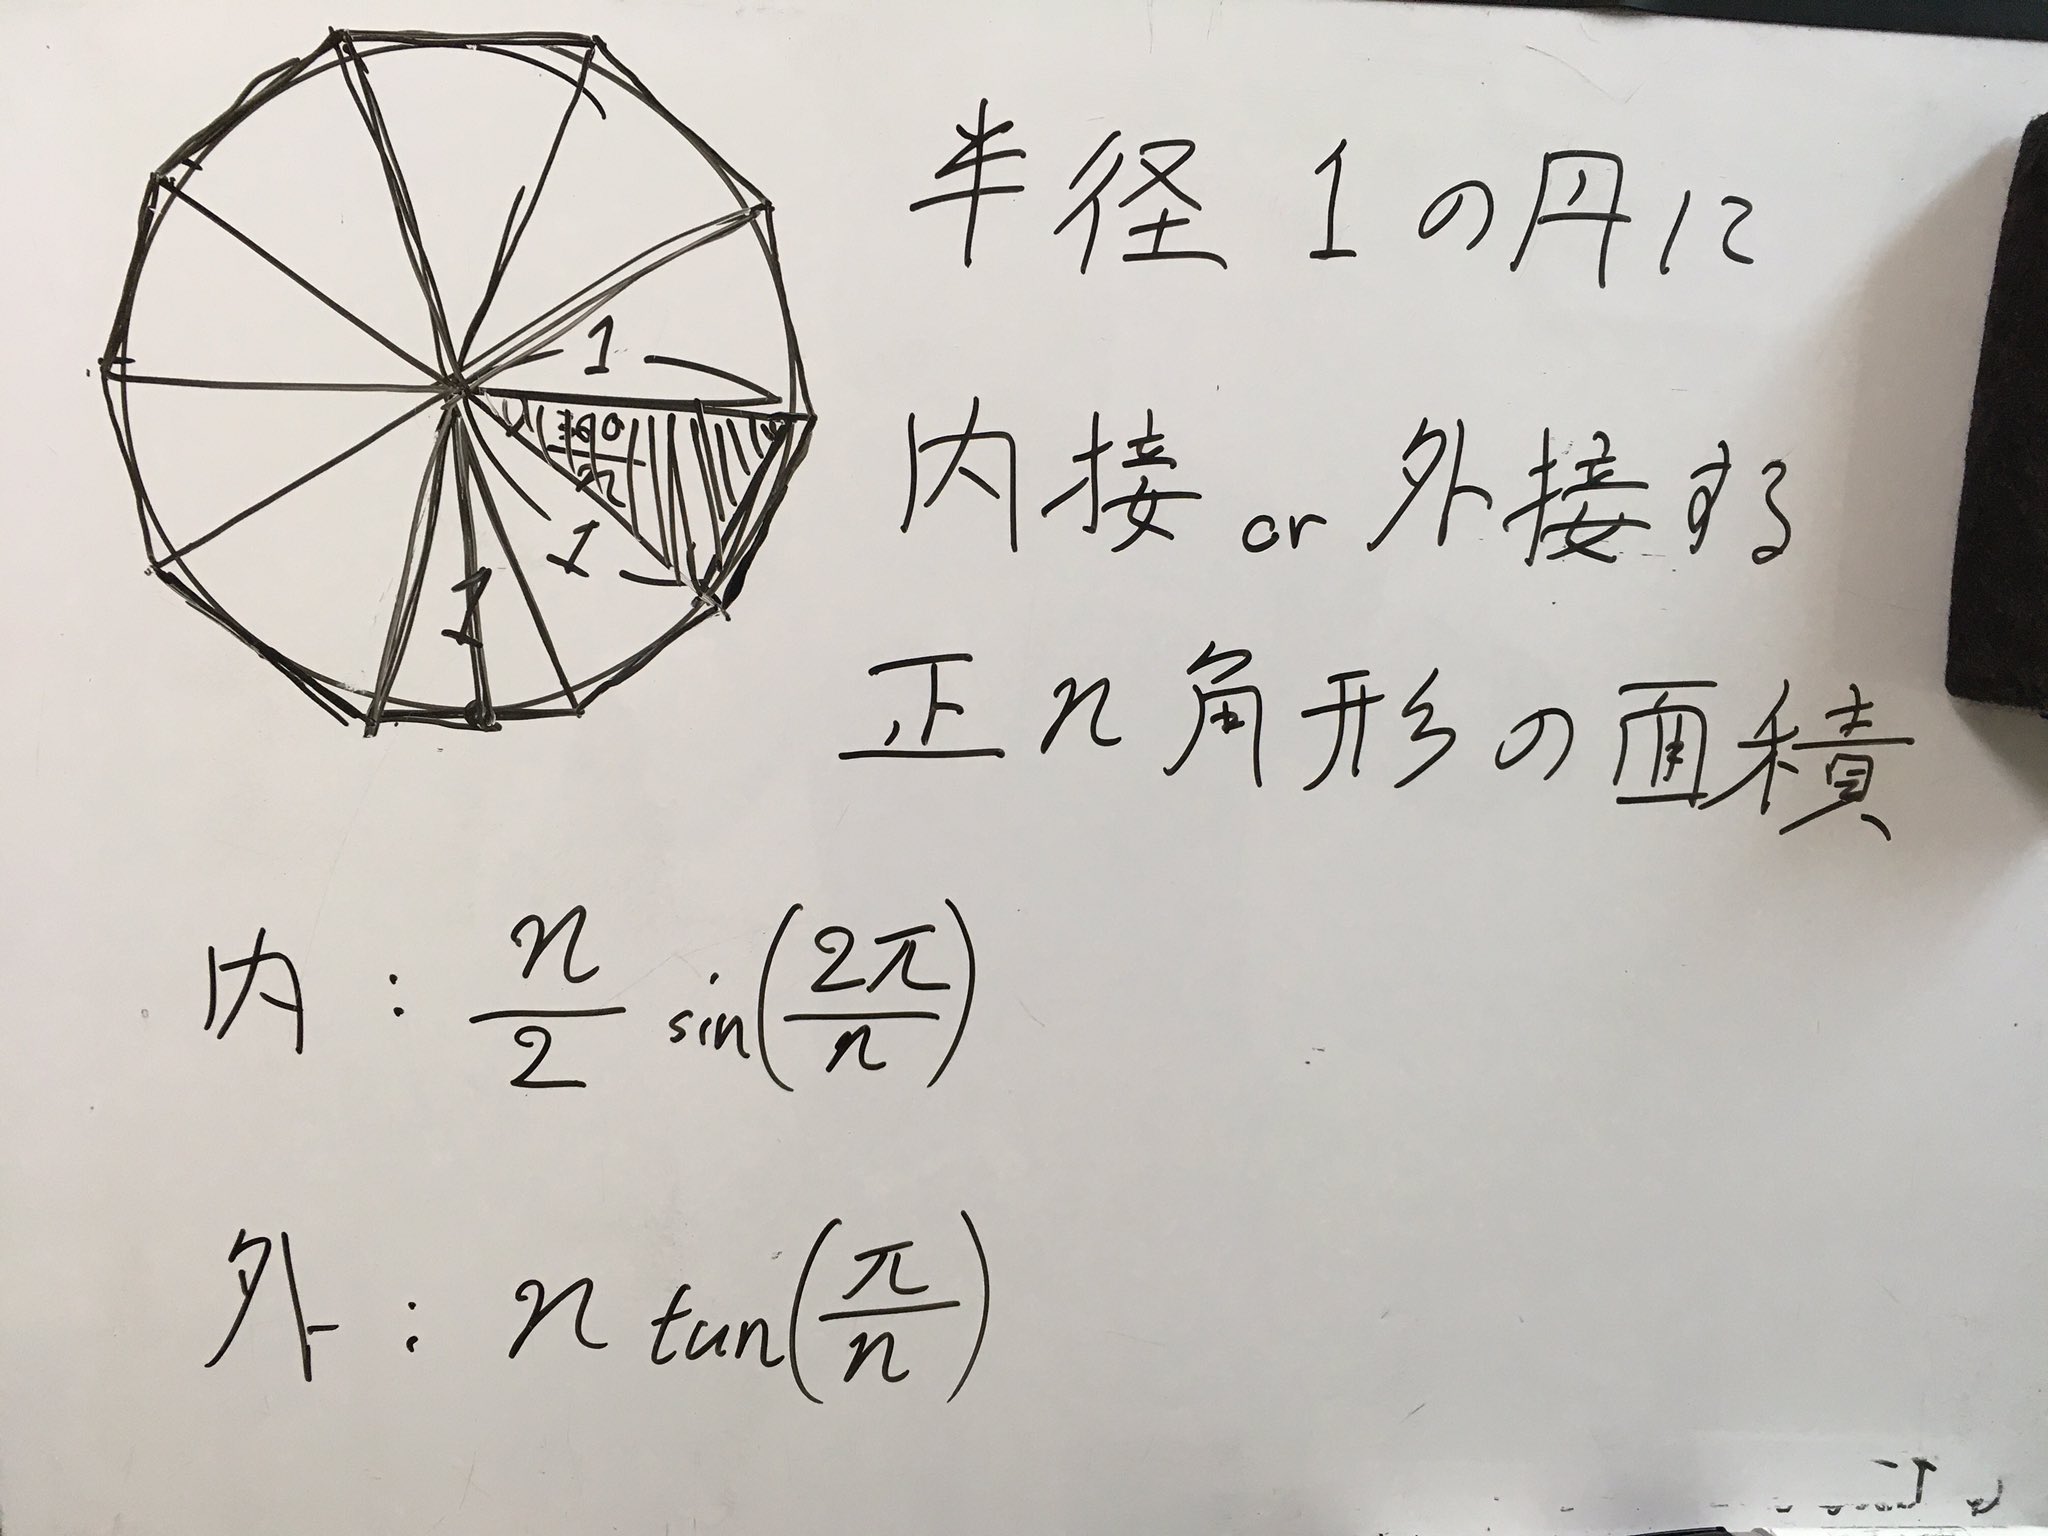 1
360
n
1
1
半径1の円に
内接 or 外接する
正n角形の面積
内 : n/2 sin(2π/n)
外 : n tan(π/n)